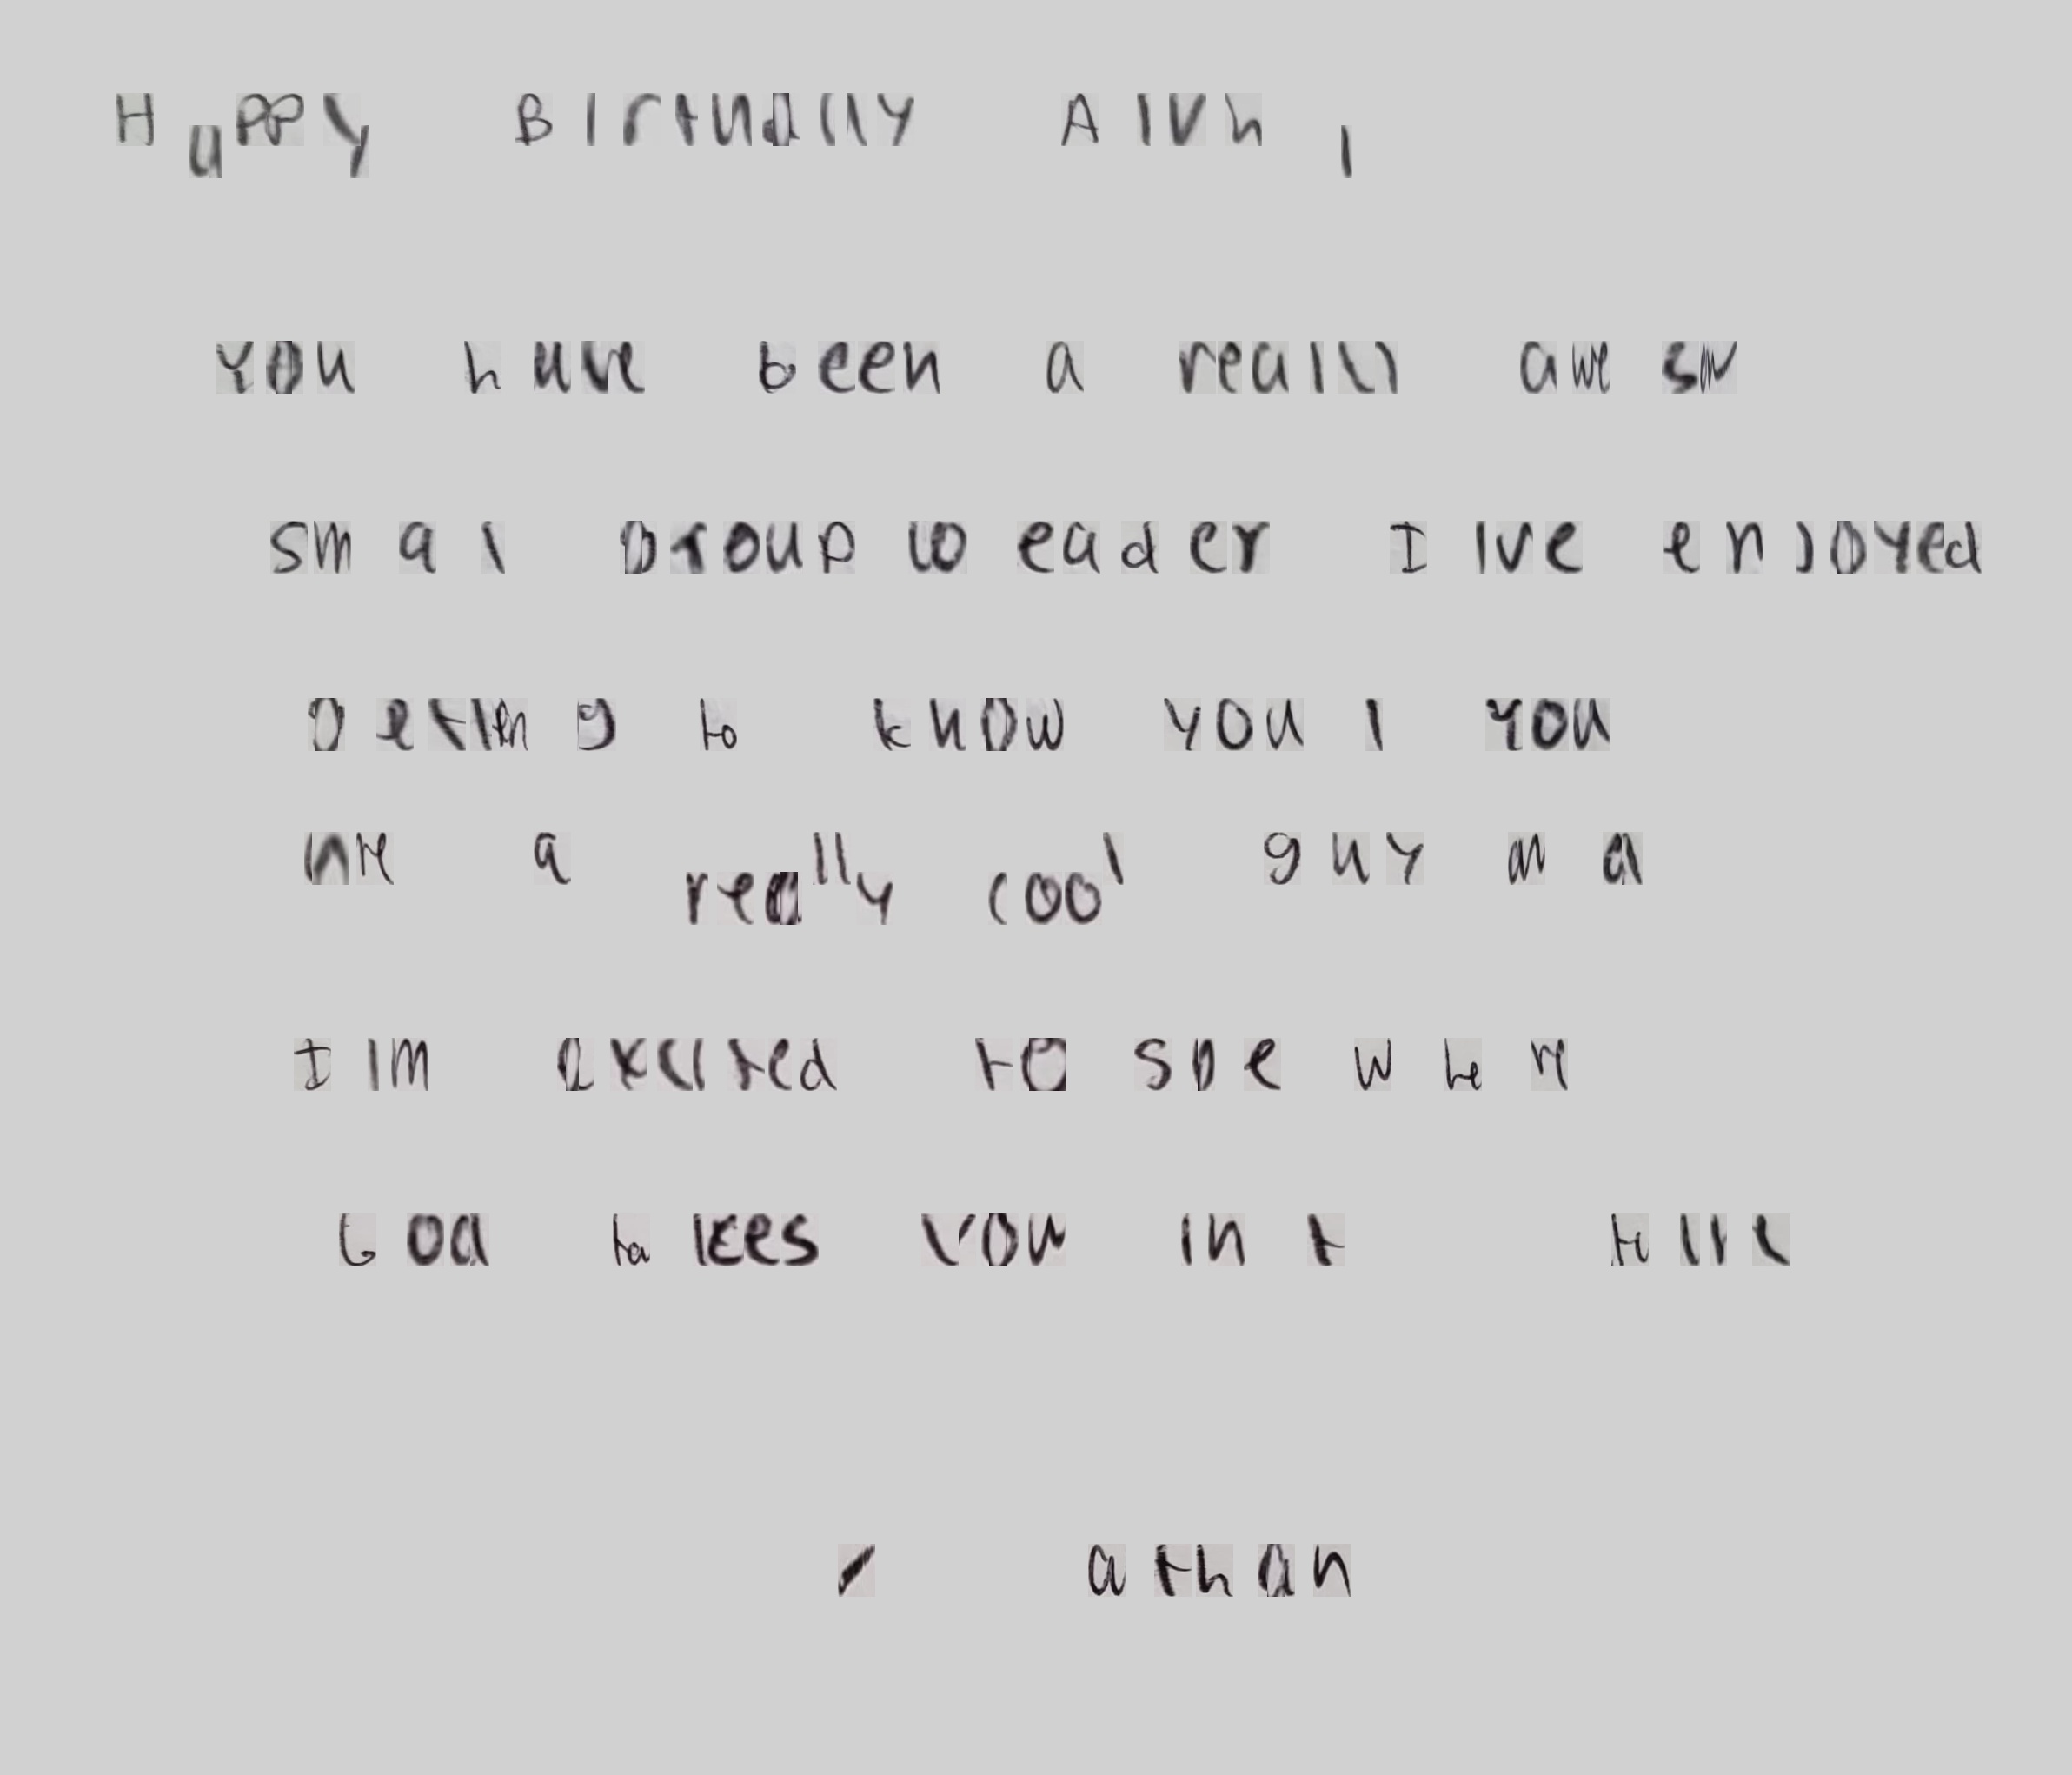 Happy Birthday Alvn,
you have been a really awe som
small group leader I've enjoyed
getting to know you! you
are a really cool guy and
I'm excited to see where
God takes you in t
athan